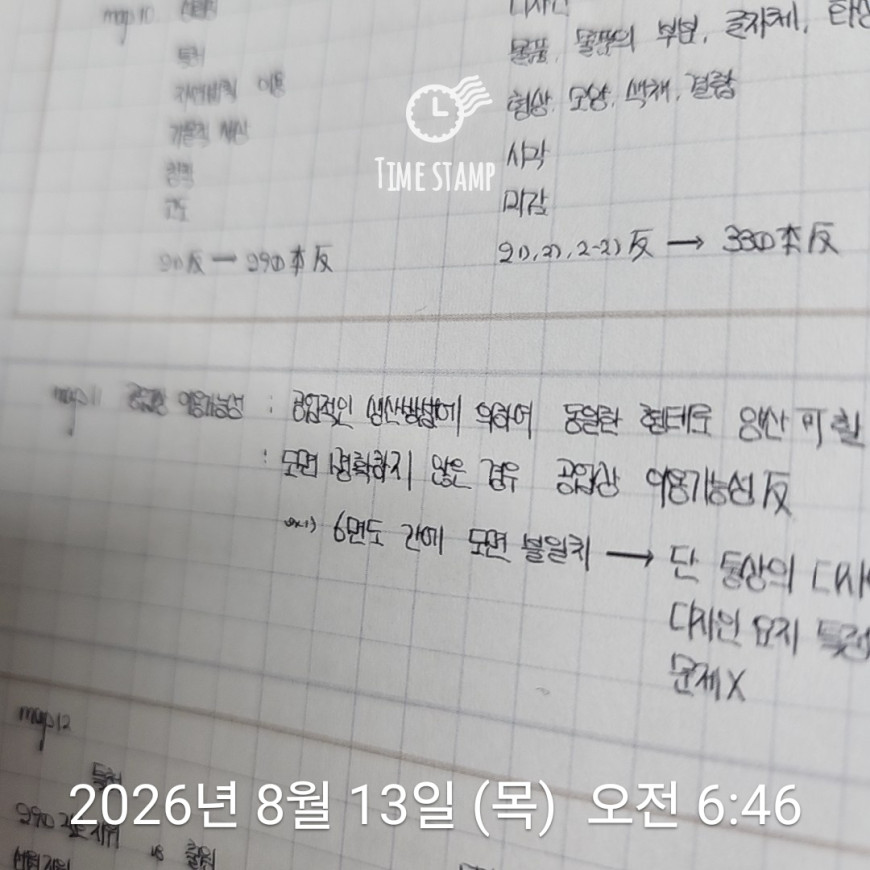 map10 디자인
특허 물품, 물품의 부분, 글자체, 화상
자연법칙 이용 형상, 모양, 색채, 결합
기술적 사상 시각
창작 미감
고도
29①反 → 29①本反 2 1), 2), 2-2) 反 → 33①本反
map11 공업상 이용가능성 : 공업적인 생산방법에 의하여 동일한 형태로 양산 可할
: 도면 명확하지 않은 경우 공업상 이용가능성 反
ex1) 6면도 간에 도면 불일치 → 단 통상의 디자
디자인 요지 특정
문제X
map12
특허
vs 출원
TIME STAMP
2026년 8월 13일 (목) 오전 6:46